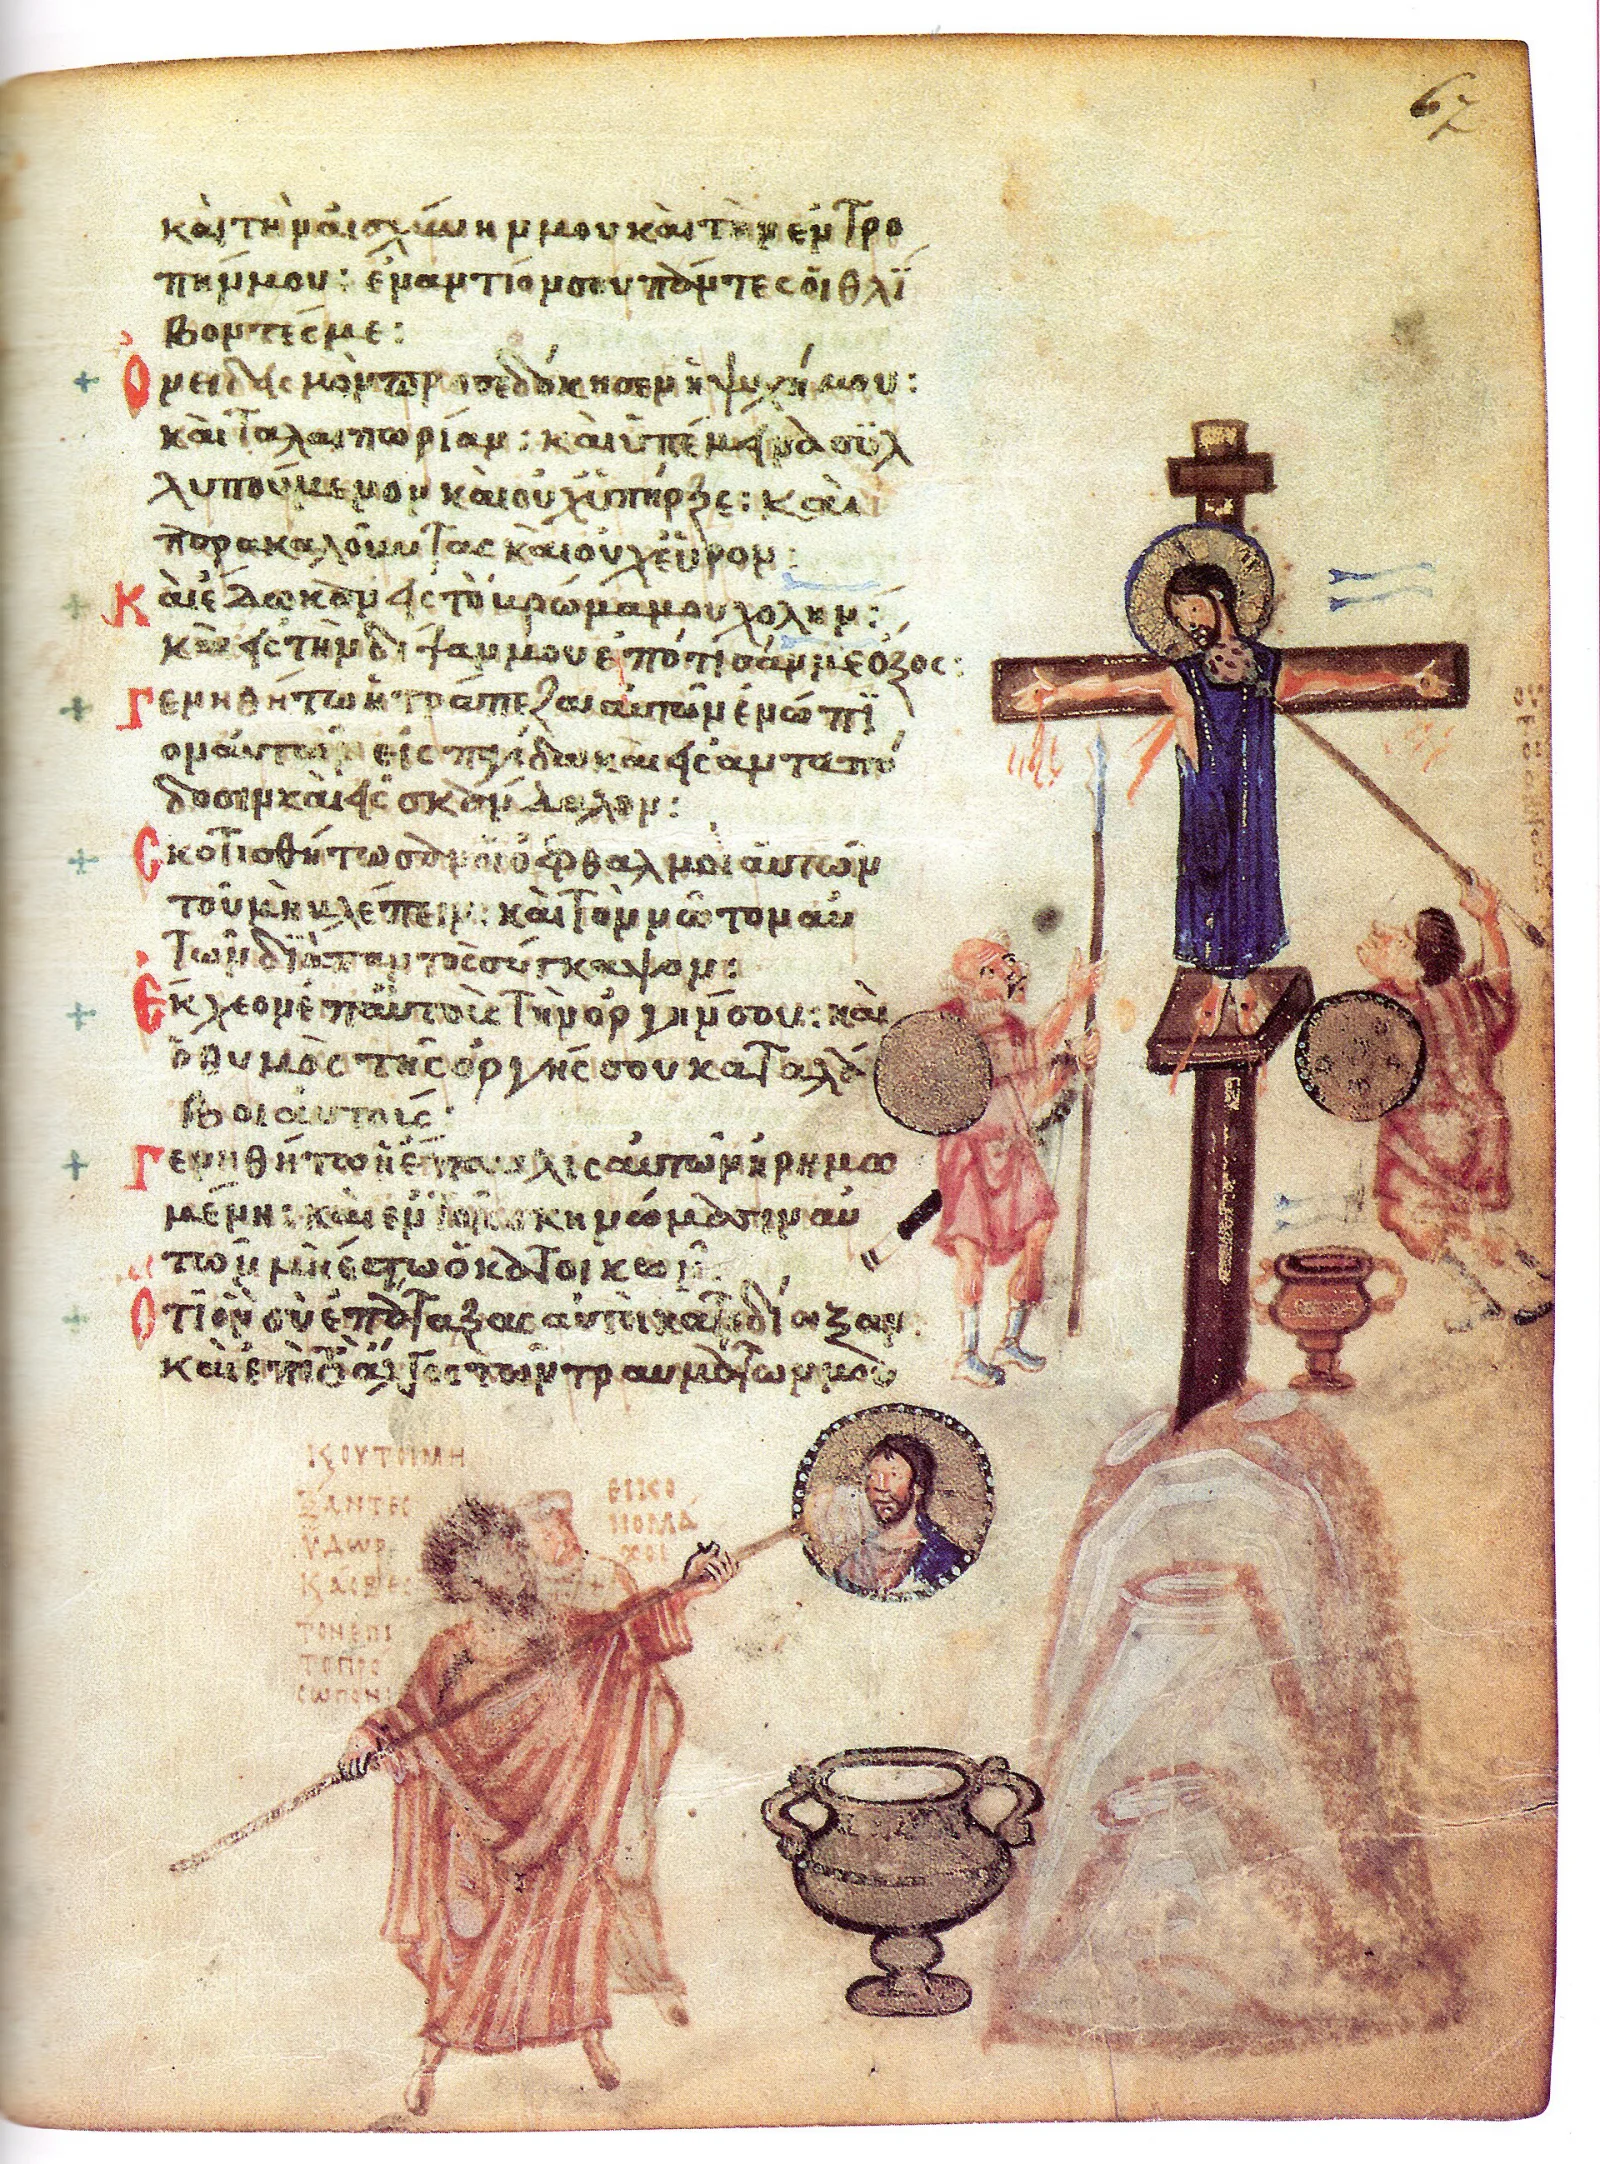 67
καὶ τὴν αἰσχύνην μου καὶ τὴν ἐντρο
πήν μου: ἐναντίον σου πάντες οἱ θλί
βοντές με:
Ὀνειδισμὸν προσεδόκησεν ἡ ψυχή μου:
καὶ ταλαιπωρίαν: καὶ ὑπέμεινα συλ
λυπούμενον καὶ οὐχ ὑπῆρξε: καὶ
παρακαλοῦντας καὶ οὐχ εὗρον:
Καὶ ἔδωκαν εἰς τὸ βρῶμά μου χολήν:
καὶ εἰς τὴν δίψαν μου ἐπότισάν με ὄξος:
Γενηθήτω ἡ τράπεζα αὐτῶν ἐνώπι
ον αὐτῶν εἰς παγίδα καὶ εἰς ἀνταπό
δοσιν καὶ εἰς σκάνδαλον:
Σκοτισθήτωσαν οἱ ὀφθαλμοὶ αὐτῶν
τοῦ μὴ βλέπειν: καὶ τὸν νῶτον αὐ
τῶν διὰ παντὸς σύγκαμψον:
Ἔκχεον ἐπ αὐτοὺς τὴν ὀργήν σου: καὶ
ὁ θυμὸς τῆς ὀργῆς σου καταλά
βοι αὐτούς:
Γενηθήτω ἡ ἔπαυλις αὐτῶν ἠρημω
μένη: καὶ ἐν τοῖς σκηνώμασιν αὐ
τῶν μὴ ἔστω ὁ κατοικῶν:
Ὅτι ὃν σὺ ἐπάταξας αὐτοὶ κατεδίωξαν:
καὶ ἐπὶ τὸ ἄλγος τῶν τραυμάτων μου
Κ ΟΥΤΟΙ ΜΗ
ΞΑΝΤΕС
ΥΔΩΡ
ΚΑΙ
ΤΟΝ ΕΠΙ
ΤΟ ΠΡΟ
СΩΠΟΝ
ΕΙΚΟ
ΝΟΜΑ
ΧΟΙ